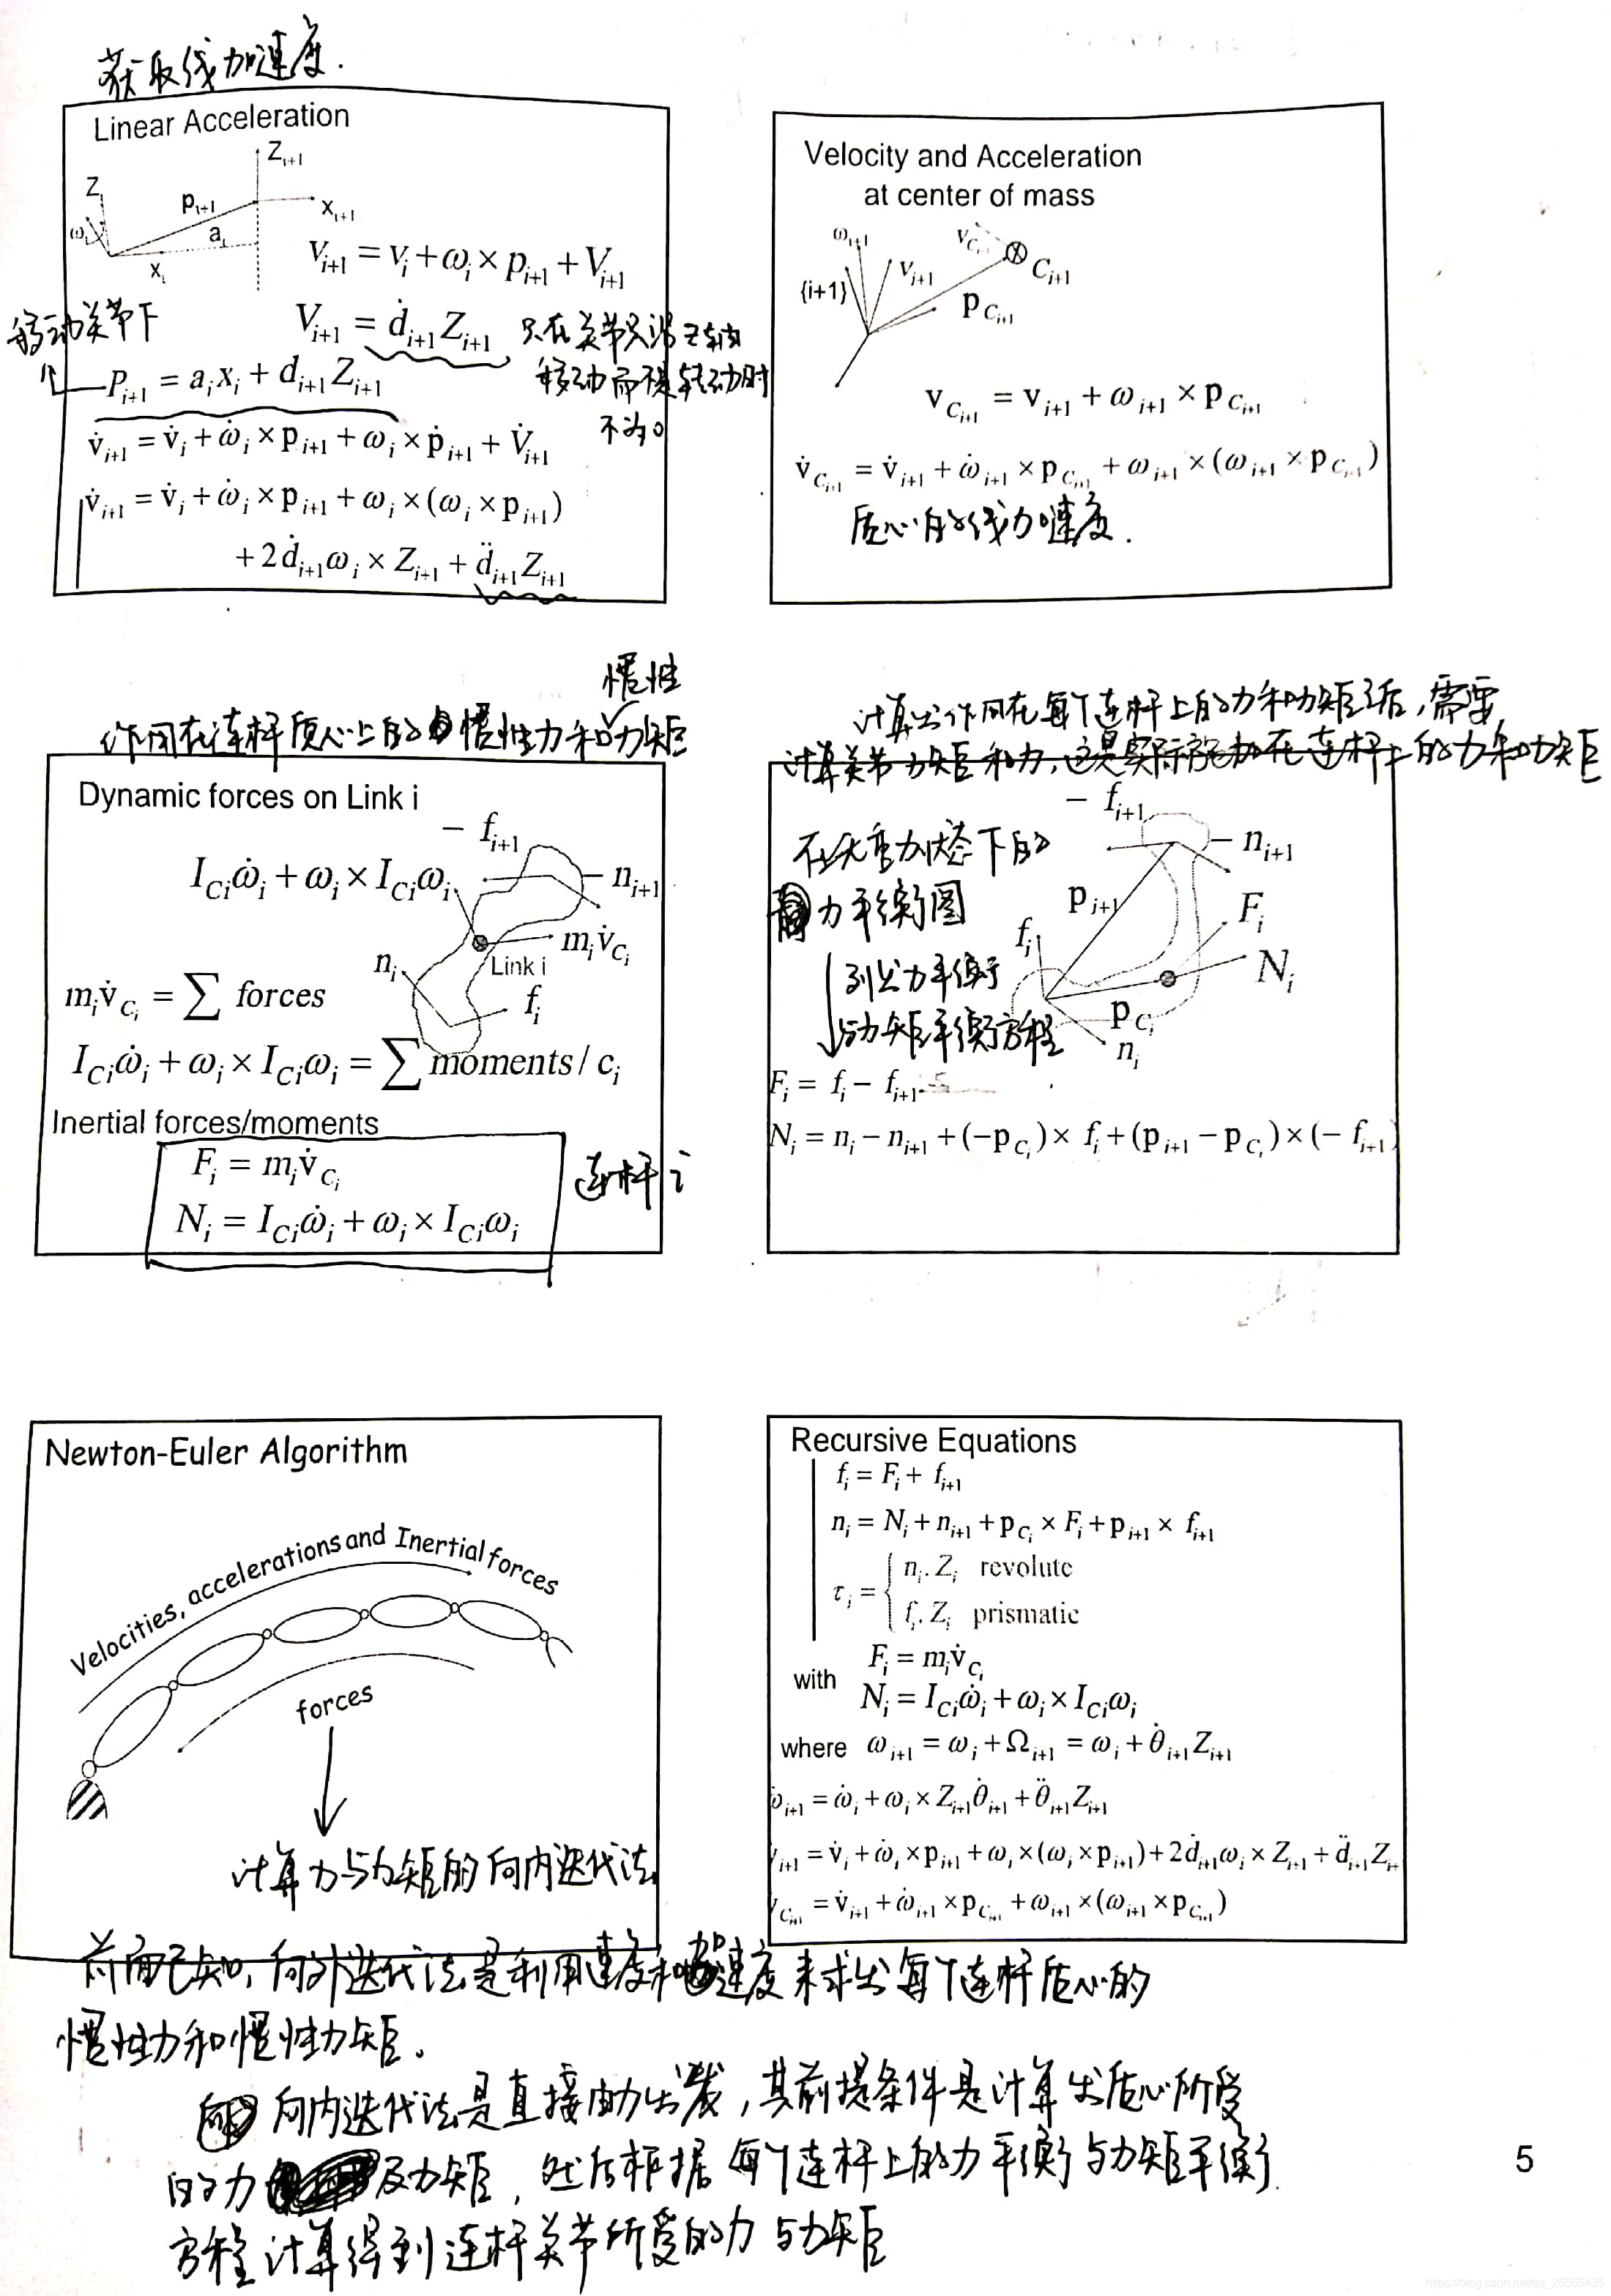 获取线加速度.
Linear Acceleration
Z_{i+1}
Z_i
p_{i+1}
x_{i+1}
ω_i
a_i
x_i
v_{i+1} = v_i + ω_i × p_{i+1} + V_{i+1}
移动关节下
V_{i+1} = ḋ_{i+1} Z_{i+1}
只在关节只沿Z轴向
移动而不是转动时
不为0
P_{i+1} = a_i x_i + d_{i+1} Z_{i+1}
v̇_{i+1} = v̇_i + ω̇_i × p_{i+1} + ω_i × ṗ_{i+1} + V̇_{i+1}
v̇_{i+1} = v̇_i + ω̇_i × p_{i+1} + ω_i × (ω_i × p_{i+1})
+ 2ḋ_{i+1} ω_i × Z_{i+1} + d̈_{i+1} Z_{i+1}
Velocity and Acceleration
at center of mass
ω_{i+1}
v_{C_{i+1}}
v_{i+1}
C_{i+1}
{i+1}
p_{C_{i+1}}
v_{C_{i+1}} = v_{i+1} + ω_{i+1} × p_{C_{i+1}}
v̇_{C_{i+1}} = v̇_{i+1} + ω̇_{i+1} × p_{C_{i+1}} + ω_{i+1} × (ω_{i+1} × p_{C_{i+1}})
质心的线加速度.
惯性
作用在连杆质心上的惯性力和力矩
Dynamic forces on Link i
- f_{i+1}
I_{Ci} ω̇_i + ω_i × I_{Ci} ω_i
- n_{i+1}
m_i v̇_{C_i}
n_i
Link i
m_i v̇_{C_i} = ∑ forces
f_i
I_{Ci} ω̇_i + ω_i × I_{Ci} ω_i = ∑ moments / c_i
Inertial forces/moments
F_i = m_i v̇_{C_i}
连杆i
N_i = I_{Ci} ω̇_i + ω_i × I_{Ci} ω_i
计算出作用在每个连杆上的力和力矩之后,需要
计算关节力矩和力,这是实际施加在连杆上的力和力矩
- f_{i+1}
在无重力状态下的
- n_{i+1}
静力平衡图
p_{i+1}
F_i
f_i
列出力平衡
N_i
与力矩平衡方程
p_{C_i}
n_i
F_i = f_i - f_{i+1}
N_i = n_i - n_{i+1} + (-p_{C_i}) × f_i + (p_{i+1} - p_{C_i}) × (- f_{i+1})
Newton-Euler Algorithm
Velocities, accelerations and Inertial forces
forces
计算力与力矩的向内迭代法
Recursive Equations
f_i = F_i + f_{i+1}
n_i = N_i + n_{i+1} + p_{C_i} × F_i + p_{i+1} × f_{i+1}
τ_i = { n_i . Z_i revolute
f_i . Z_i prismatic
with F_i = m_i v̇_{C_i}
N_i = I_{Ci} ω̇_i + ω_i × I_{Ci} ω_i
where ω_{i+1} = ω_i + Ω_{i+1} = ω_i + θ̇_{i+1} Z_{i+1}
ω̇_{i+1} = ω̇_i + ω_i × Z_{i+1} θ̇_{i+1} + θ̈_{i+1} Z_{i+1}
v̇_{i+1} = v̇_i + ω̇_i × p_{i+1} + ω_i × (ω_i × p_{i+1}) + 2ḋ_{i+1} ω_i × Z_{i+1} + d̈_{i+1} Z_{i+}
v̇_{C_{i+1}} = v̇_{i+1} + ω̇_{i+1} × p_{C_{i+1}} + ω_{i+1} × (ω_{i+1} × p_{C_{i+1}})
前面已知,向外迭代法是利用速度和加速度来求出每个连杆质心的
惯性力和惯性力矩。
向内迭代法是直接由力出发,其前提条件是计算出质心所受
的力及力矩,然后根据每个连杆上的力平衡与力矩平衡
方程计算得到连杆关节所受的力与力矩
5
https://blog.csdn.net/qq_26565435